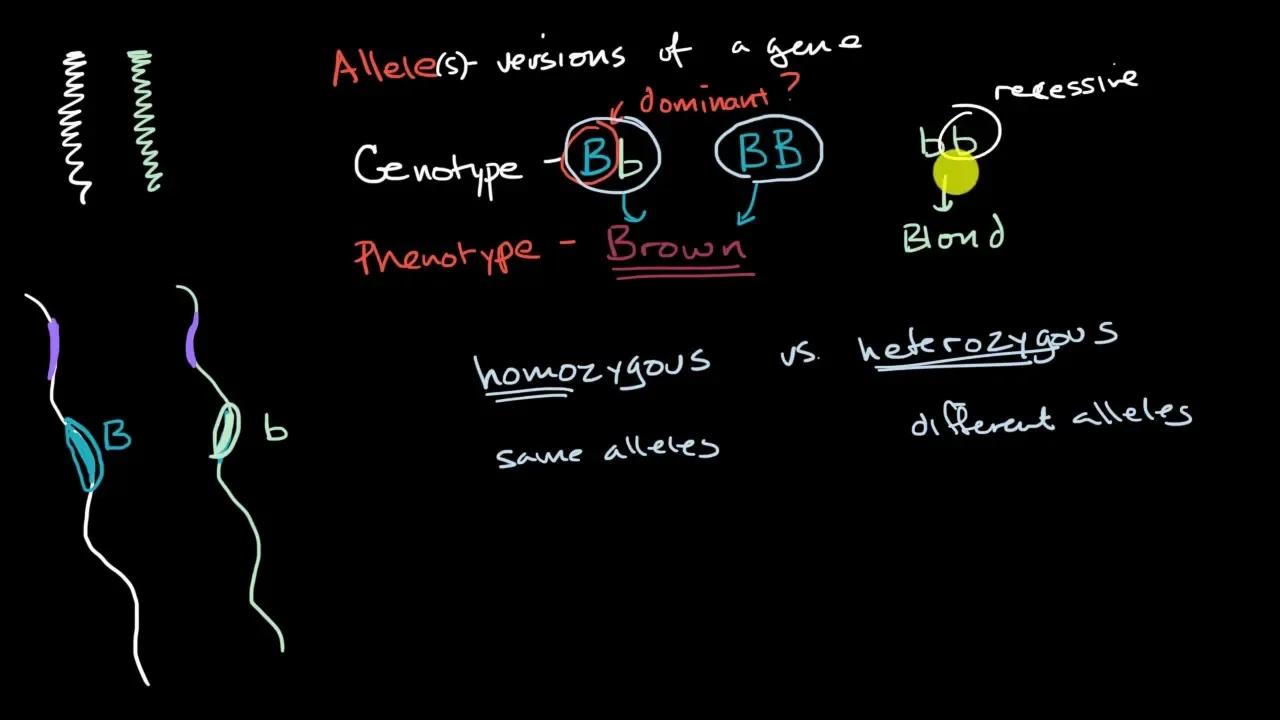 Allele(s)- versions of a gene
dominant?
recessive
Genotype - Bb BB bb
Phenotype - Brown
Blond
homozygous vs. heterozygous
same alleles
different alleles
B
b